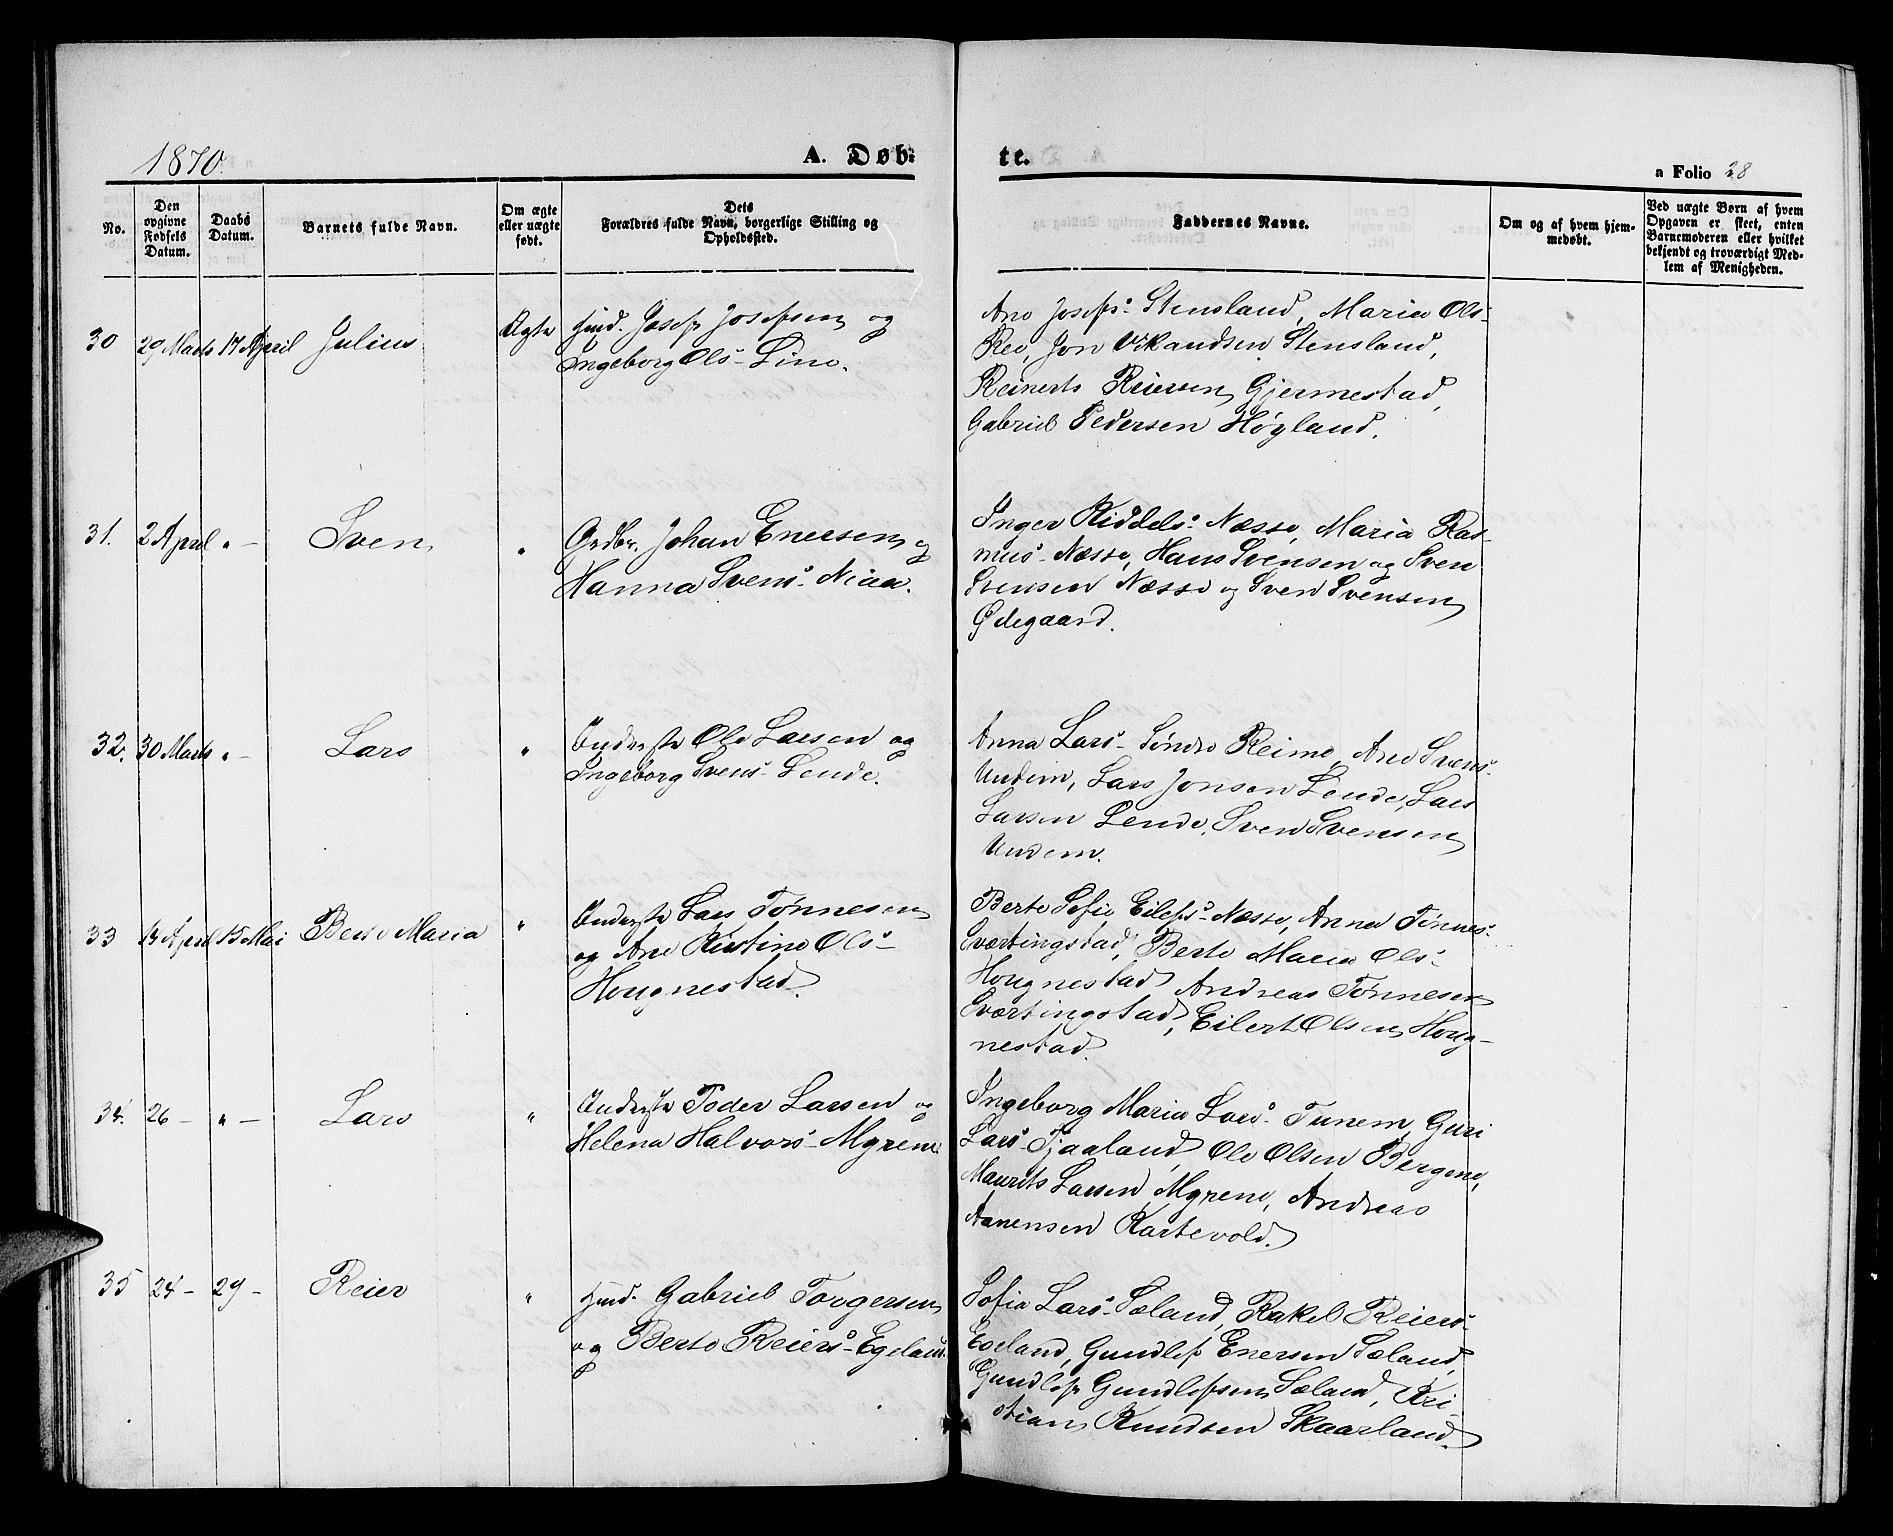 1870.
A. Døb-
te.
a Folio 28
No.
Den opgivne Fødsels Datum.
Daabs Datum.
Barnets fulde Navn.
Om ægte eller uægte født.
Dets Forældres fulde Navn, borgerlige Stilling og Opholdssted.
Faddernes Navne.
Om og af hvem hjemmedøbt.
Ved uægte Børn af hvem Opgaven er skeet, enten Barnemoderen eller hvilket bekjendt og troværdigt Medlem af Menigheden.
30
29 Marts
17 April
Julius
Ægte
Huud. Josef Josefsen og
Ingeborg Ols- Line.
Ane Josefs- Stensland, Maria Ols-
Ree, Jon Vikandsen Stensland,
Reinerts Reiersen Gjermestad,
Gabriel Pedersen Høyland.
31.
2 April
" -
Sven
"
Grdbr. Johan Enersen og
Hanna Svens- Niaa.
Inger Kiddels- Næsse, Maria Ras-
mus- Næsse, Hans Svensen og Sven
Svensen Næsse og Sven Svensen
Ødegaard.
32.
30 Marts
" -
Lars
"
Inderste Ole Larsen og
Ingeborg Svens- Lende.
Anna Lars- Søndre Reime, Ane Svens-
Undem, Lars Jonsen Lende, Lars
Larsen Lende, Sven Svensen
Undem.
33
13 April
15 Mai
Berte Maria
"
Inderste Lars Tønnesen
og Ane Kistine Ols-
Hougnestad.
Berte Sofie Eilefs- Næsse, Anna Tønnes-
Sværtingstad, Berte Maria Ols-
Hougnestad Andreas Tønnesen
Sværtingstad, Eilert Olsen Houg-
nestad.
34.
26 -
" -
Lars
"
Inderste Peder Larsen og
Helena Halvors- Myrene
Ingeborg Maria Lars- Tunem, Guri
Lars- Tjaaland, Ole Olsen Bergene,
Maurits Larsen Myrene, Andreas
Aanensen Kartevold.
35
24 -
29 -
Reier
"
Huud. Gabriel Torgersen
og Berte Reiers- Egeland.
Sofia Lars- Sæland, Rakel Reiers-
Egeland, Gundlef Enersen Sæland,
Gundlef Gundlefsen Sæland, Kri
stian Knudsen Skaarland.